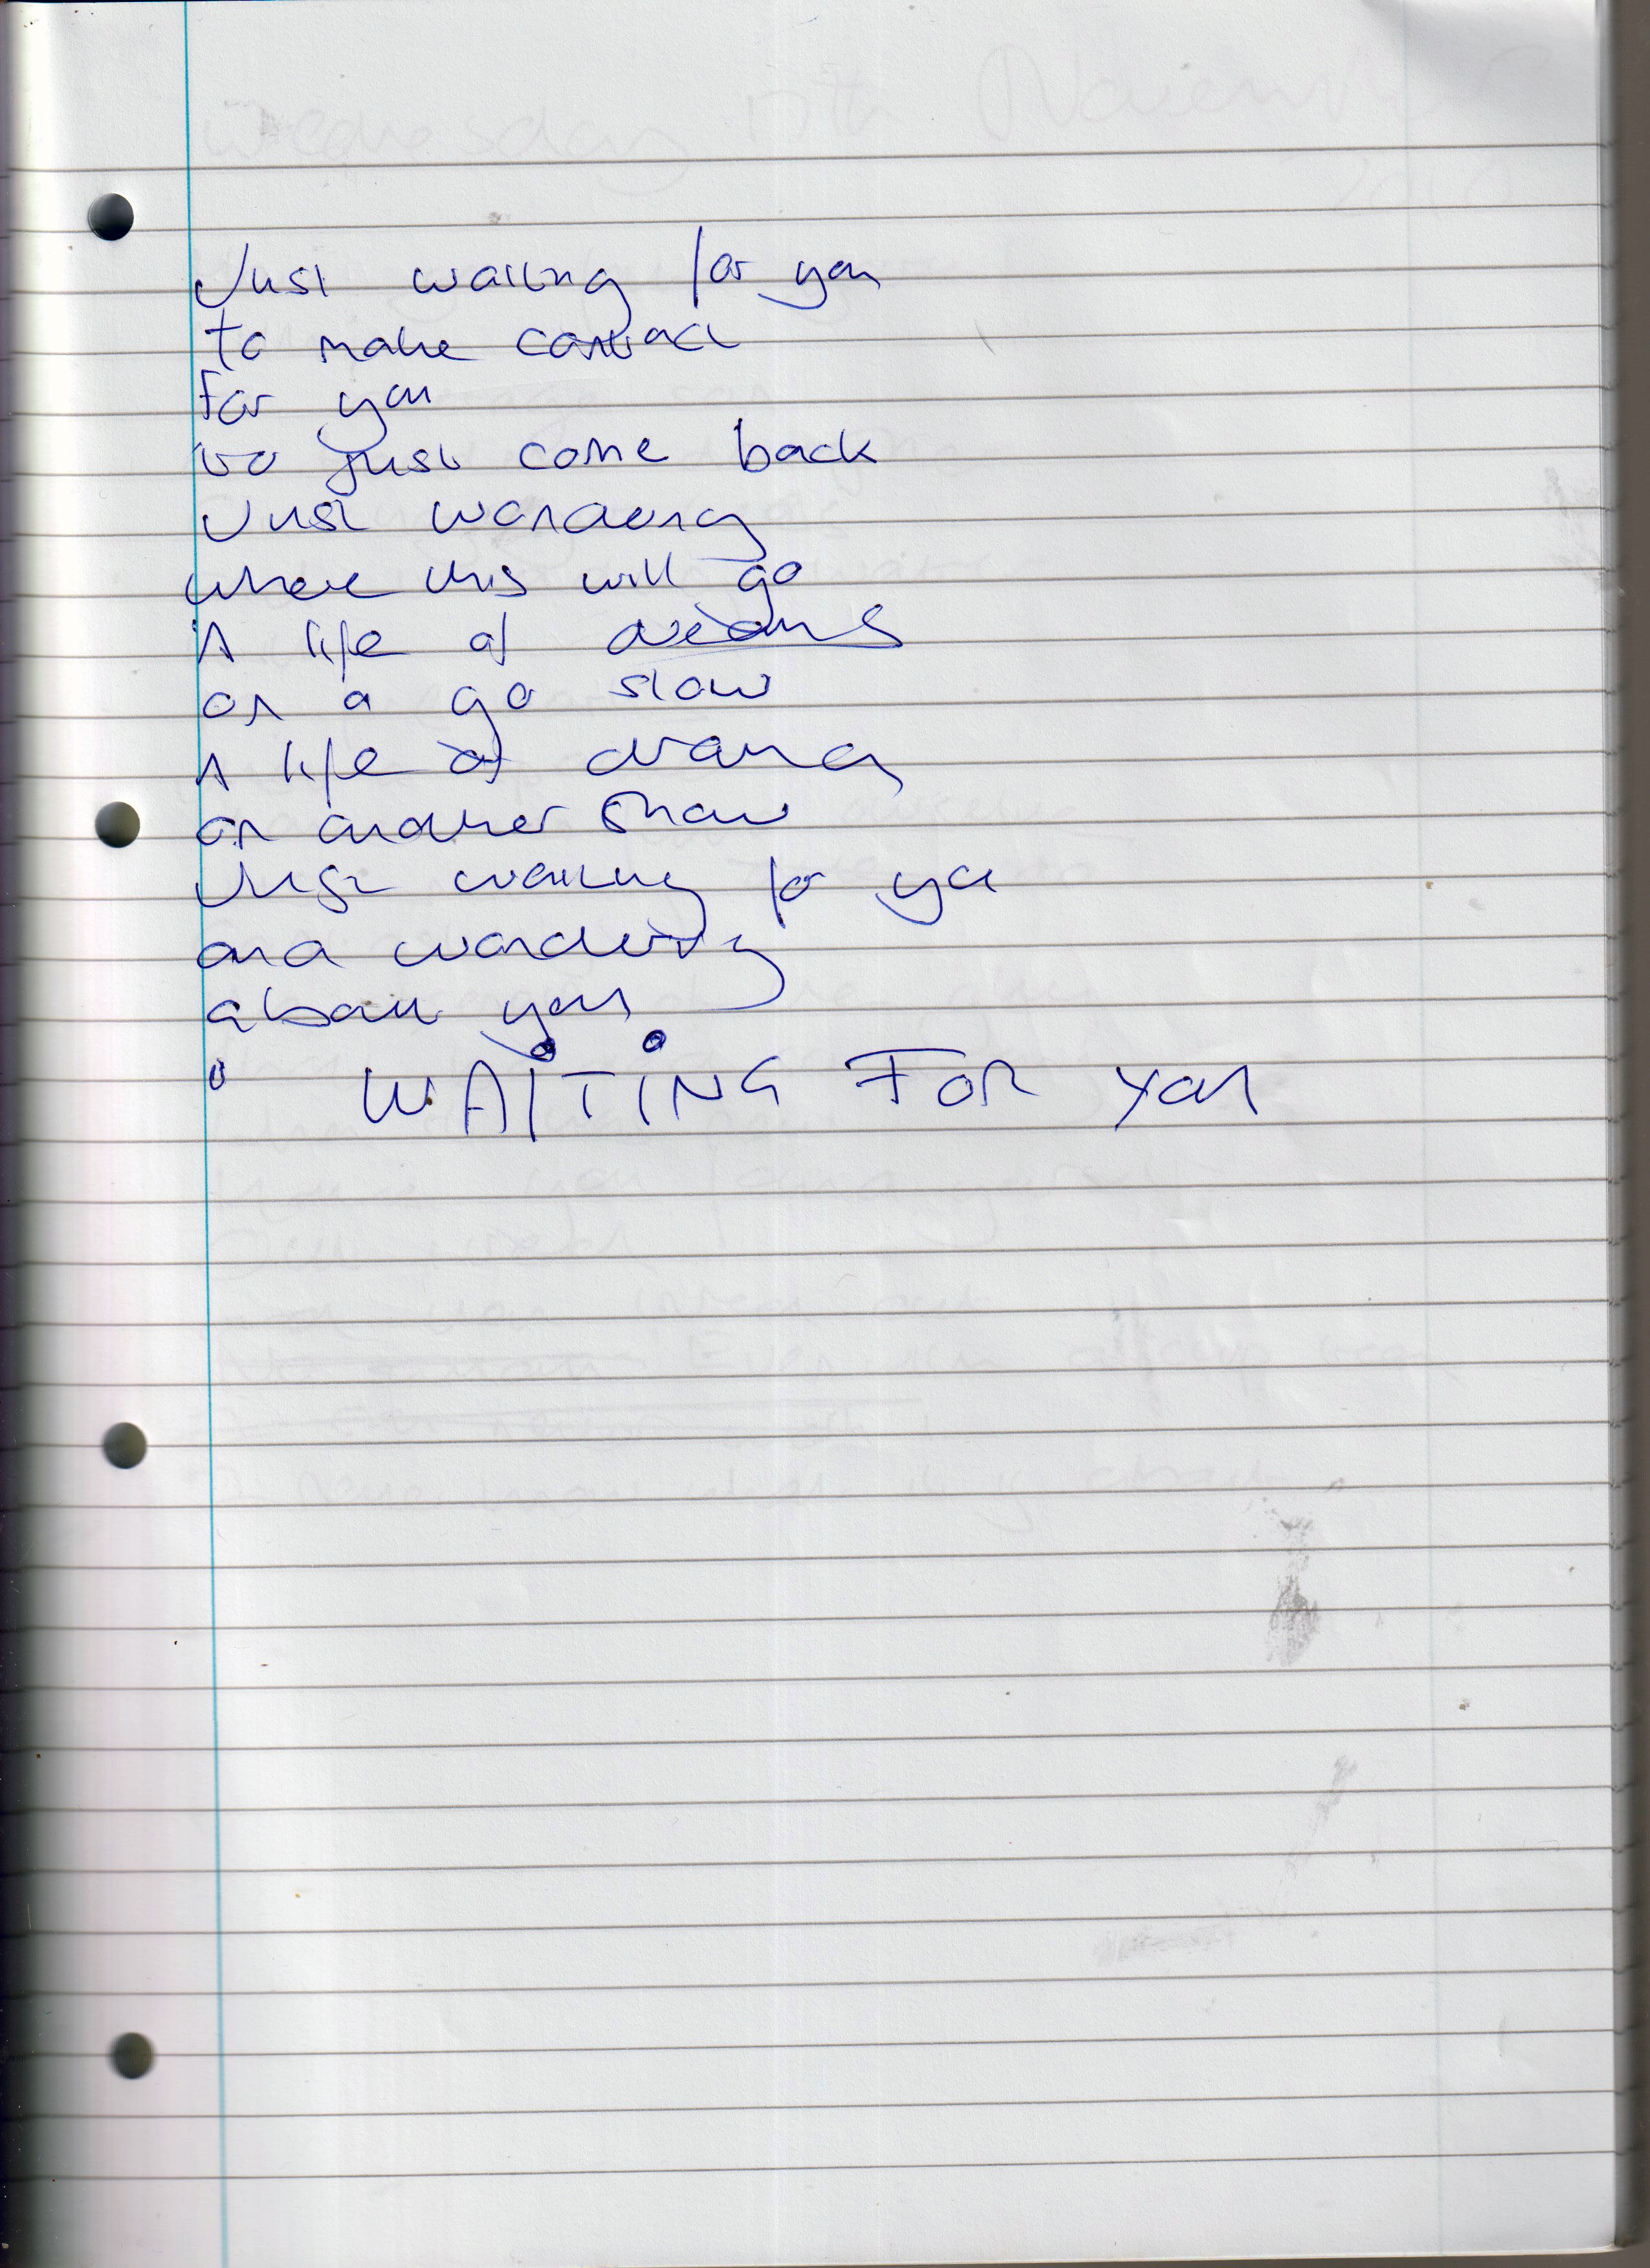 Just waiting for you
to make contact
for you
to just come back
Just wondering
where this will go
A life of dreams
or a go slow
A life of drama
or another show
Just waiting for you
and wondering
about you
WAITING FOR YOU
Wednesday 17th November
2010